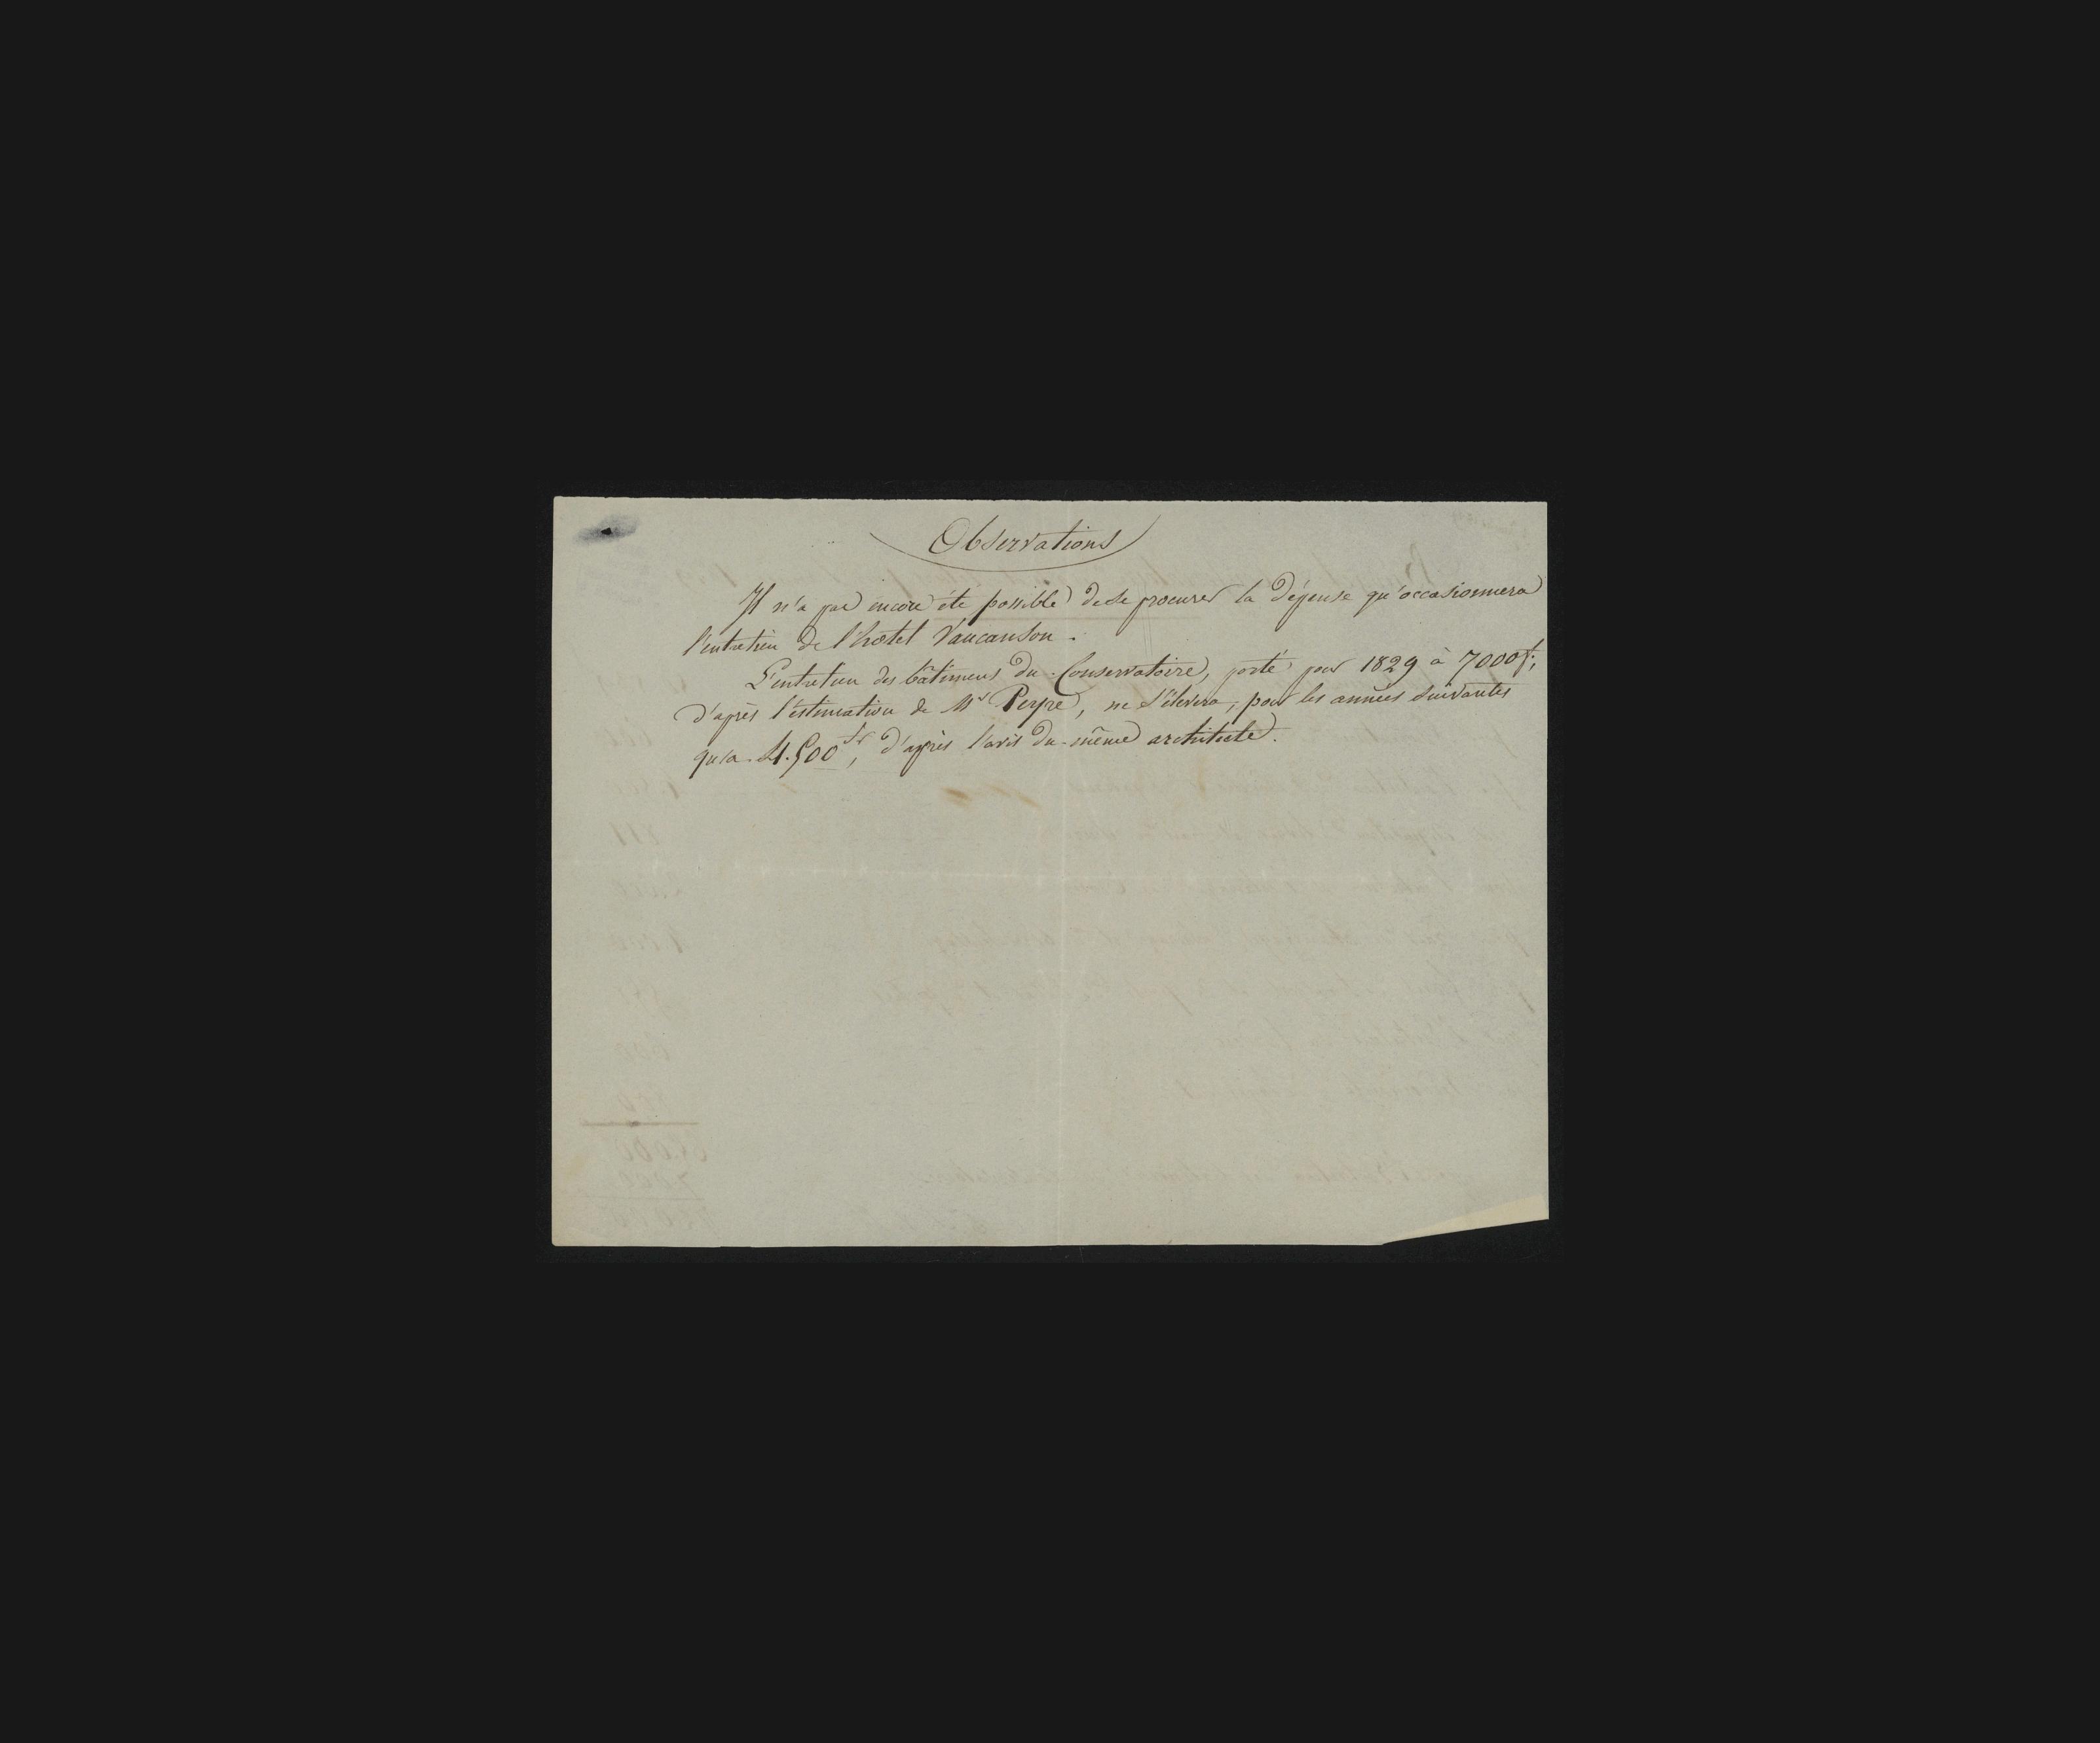 Observations
Il n'a pas encore été possible de se procurer la dépense qu'occasionnera
l'entretien de l'hôtel Vaucanson.
L'entretien des bâtimens du Conservatoire, porté pour 1829 à 7000 f.,
d'après l'estimation de Mr Peyre, ne s'élevera, pour les années suivantes
qu'à 4.500 fr, d'après l'avis du même architecte.